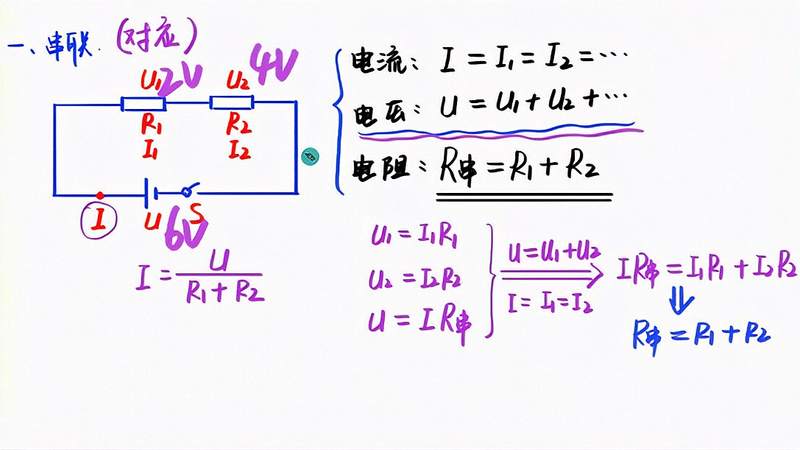 一、串联.(对应)
U₁ 2V U₂ 4V
R₁ R₂
I₁ I₂
I U S
6V
I = U/(R₁ + R₂)
电流: I = I₁ = I₂ = …
电压: U = U₁ + U₂ + …
电阻: R串 = R₁ + R₂
U₁ = I₁R₁
U₂ = I₂R₂
U = I R串
U = U₁ + U₂
I = I₁ = I₂
I R串 = I₁R₁ + I₂R₂
R串 = R₁ + R₂